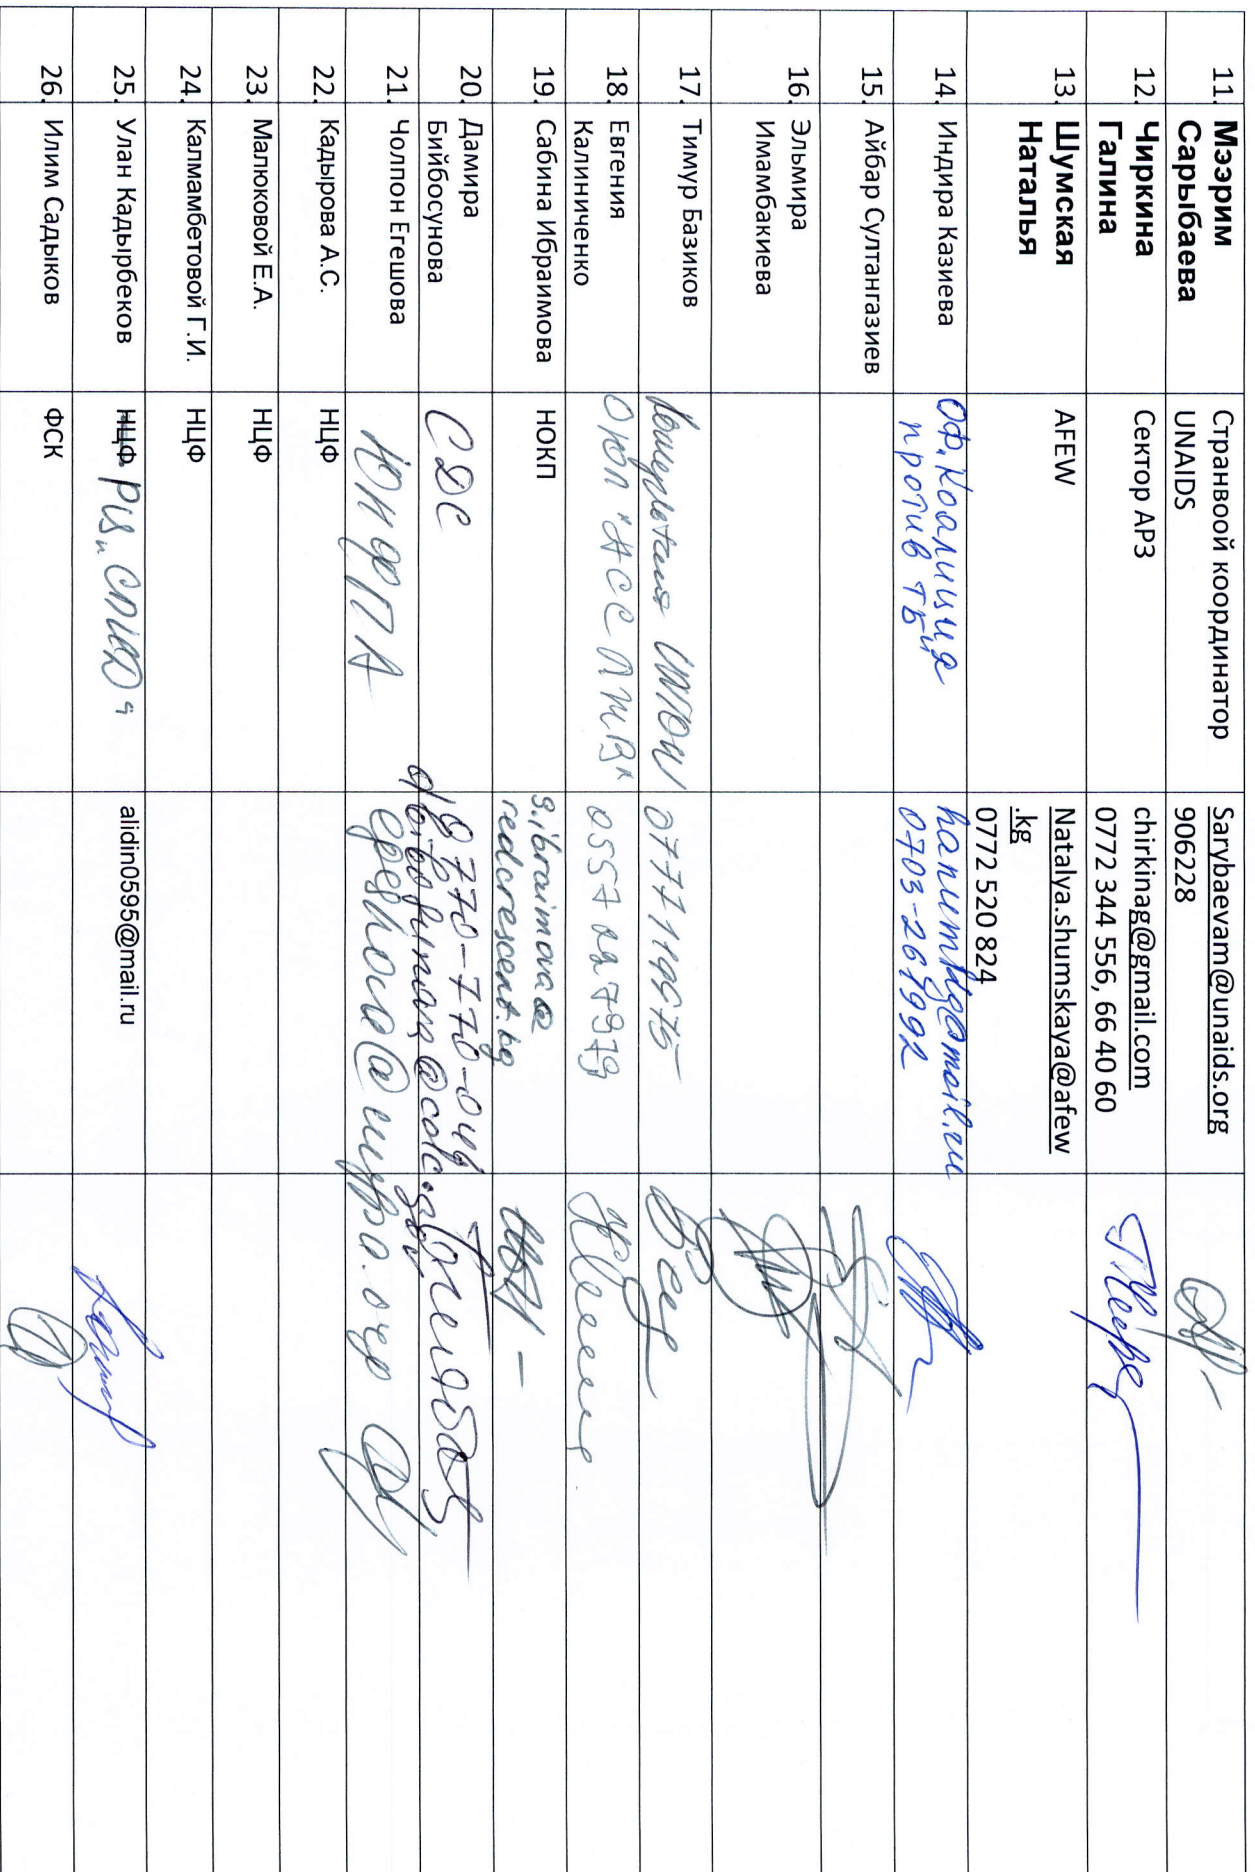 11. Мээрим Сарыбаева
Странвоой координатор UNAIDS
Sarybaevam@unaids.org
906228
12. Чиркина Галина
Сектор АРЗ
chirkinag@gmail.com
0772 344 556, 66 40 60
13. Шумская Наталья
AFEW
Natalya.shumskaya@afew
.kg
0772 520 824
14. Индира Казиева
ОФ. Коалиция
против ТБ"
0703-261992
15. Айбар Султангазиев
16. Эльмира Имамбакиева
17. Тимур Базиков
UNION
18. Евгения Калиниченко
ОЮЛ "АСС ЛЖВ"
19. Сабина Ибраимова
НОКП
s.ibraimova@
redcrescent.kg
20. Дамира Бийбосунова
CDC
0770-770-046
21. Чолпон Егешова
ЮНФПА
egeshova@unfpa.org
22. Кадырова А.С.
НЦФ
23. Малюковой Е.А.
НЦФ
24. Калмамбетовой Г.И.
НЦФ
25. Улан Кадырбеков
НЦФ
alidin0595@mail.ru
26. Илим Садыков
ФСК